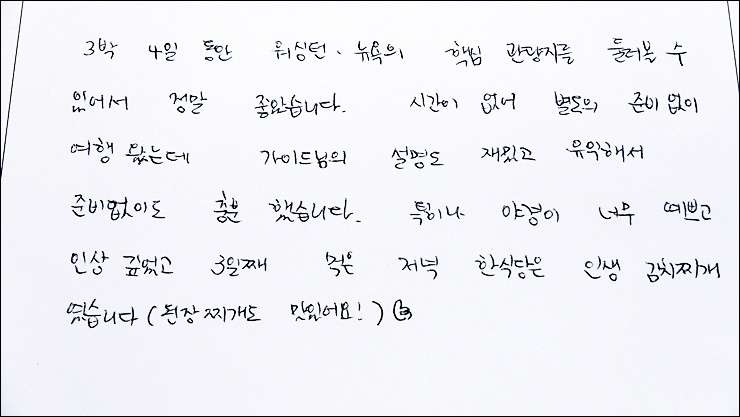 3박 4일 동안 워싱턴, 뉴욕의 핵심 관광지를 둘러볼 수
있어서 정말 좋았습니다. 시간이 없어 별도의 준비없이
여행 왔는데 가이드님의 설명도 재밌고 유익해서
준비없이도 충분 했습니다. 특히나 야경이 너무 예쁘고
인상 깊었고 3일째 먹은 저녁 한식당은 인생 김치찌개
였습니다 (된장찌개도 맛있어요!)